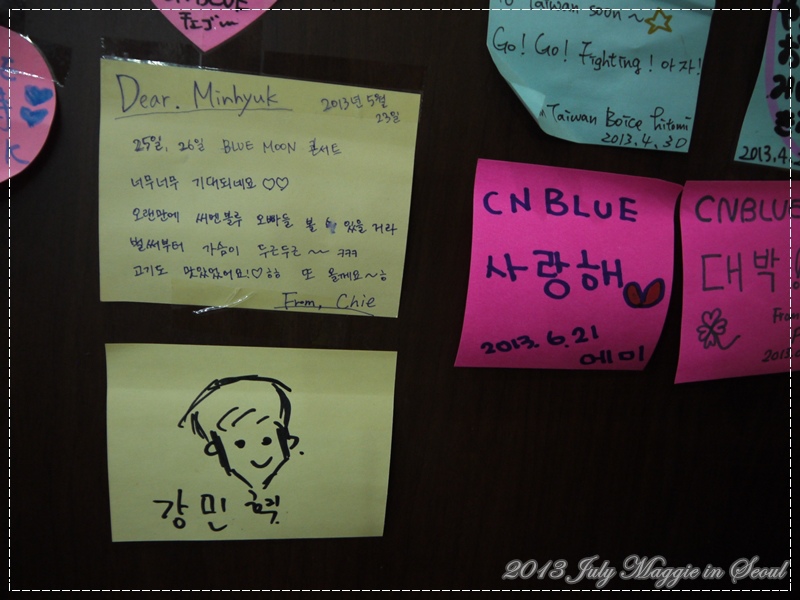 CNBLUE
To Taiwan soon ~
Go! Go! Fighting! 아자!
Taiwan Boice hitomi
2013.4.30
2013.4.
Dear. Minhyuk
2013년 5월
23일
25일, 26일 BLUE MOON 콘서트
너무너무 기대되네요 ♡♡
오랜만에 씨엔블루 오빠들 볼 수 있을 거라
벌써부터 가슴이 두근두근 ~~ ㅋㅋㅋ
고기도 맛있었어요!♡ㅎㅎ 또 올게요~ㅎ
From, Chie
CNBLUE
사랑해
2013. 6.21
에미
CNBLUE
대박
From
강민혁
2013 July Maggie in Seoul